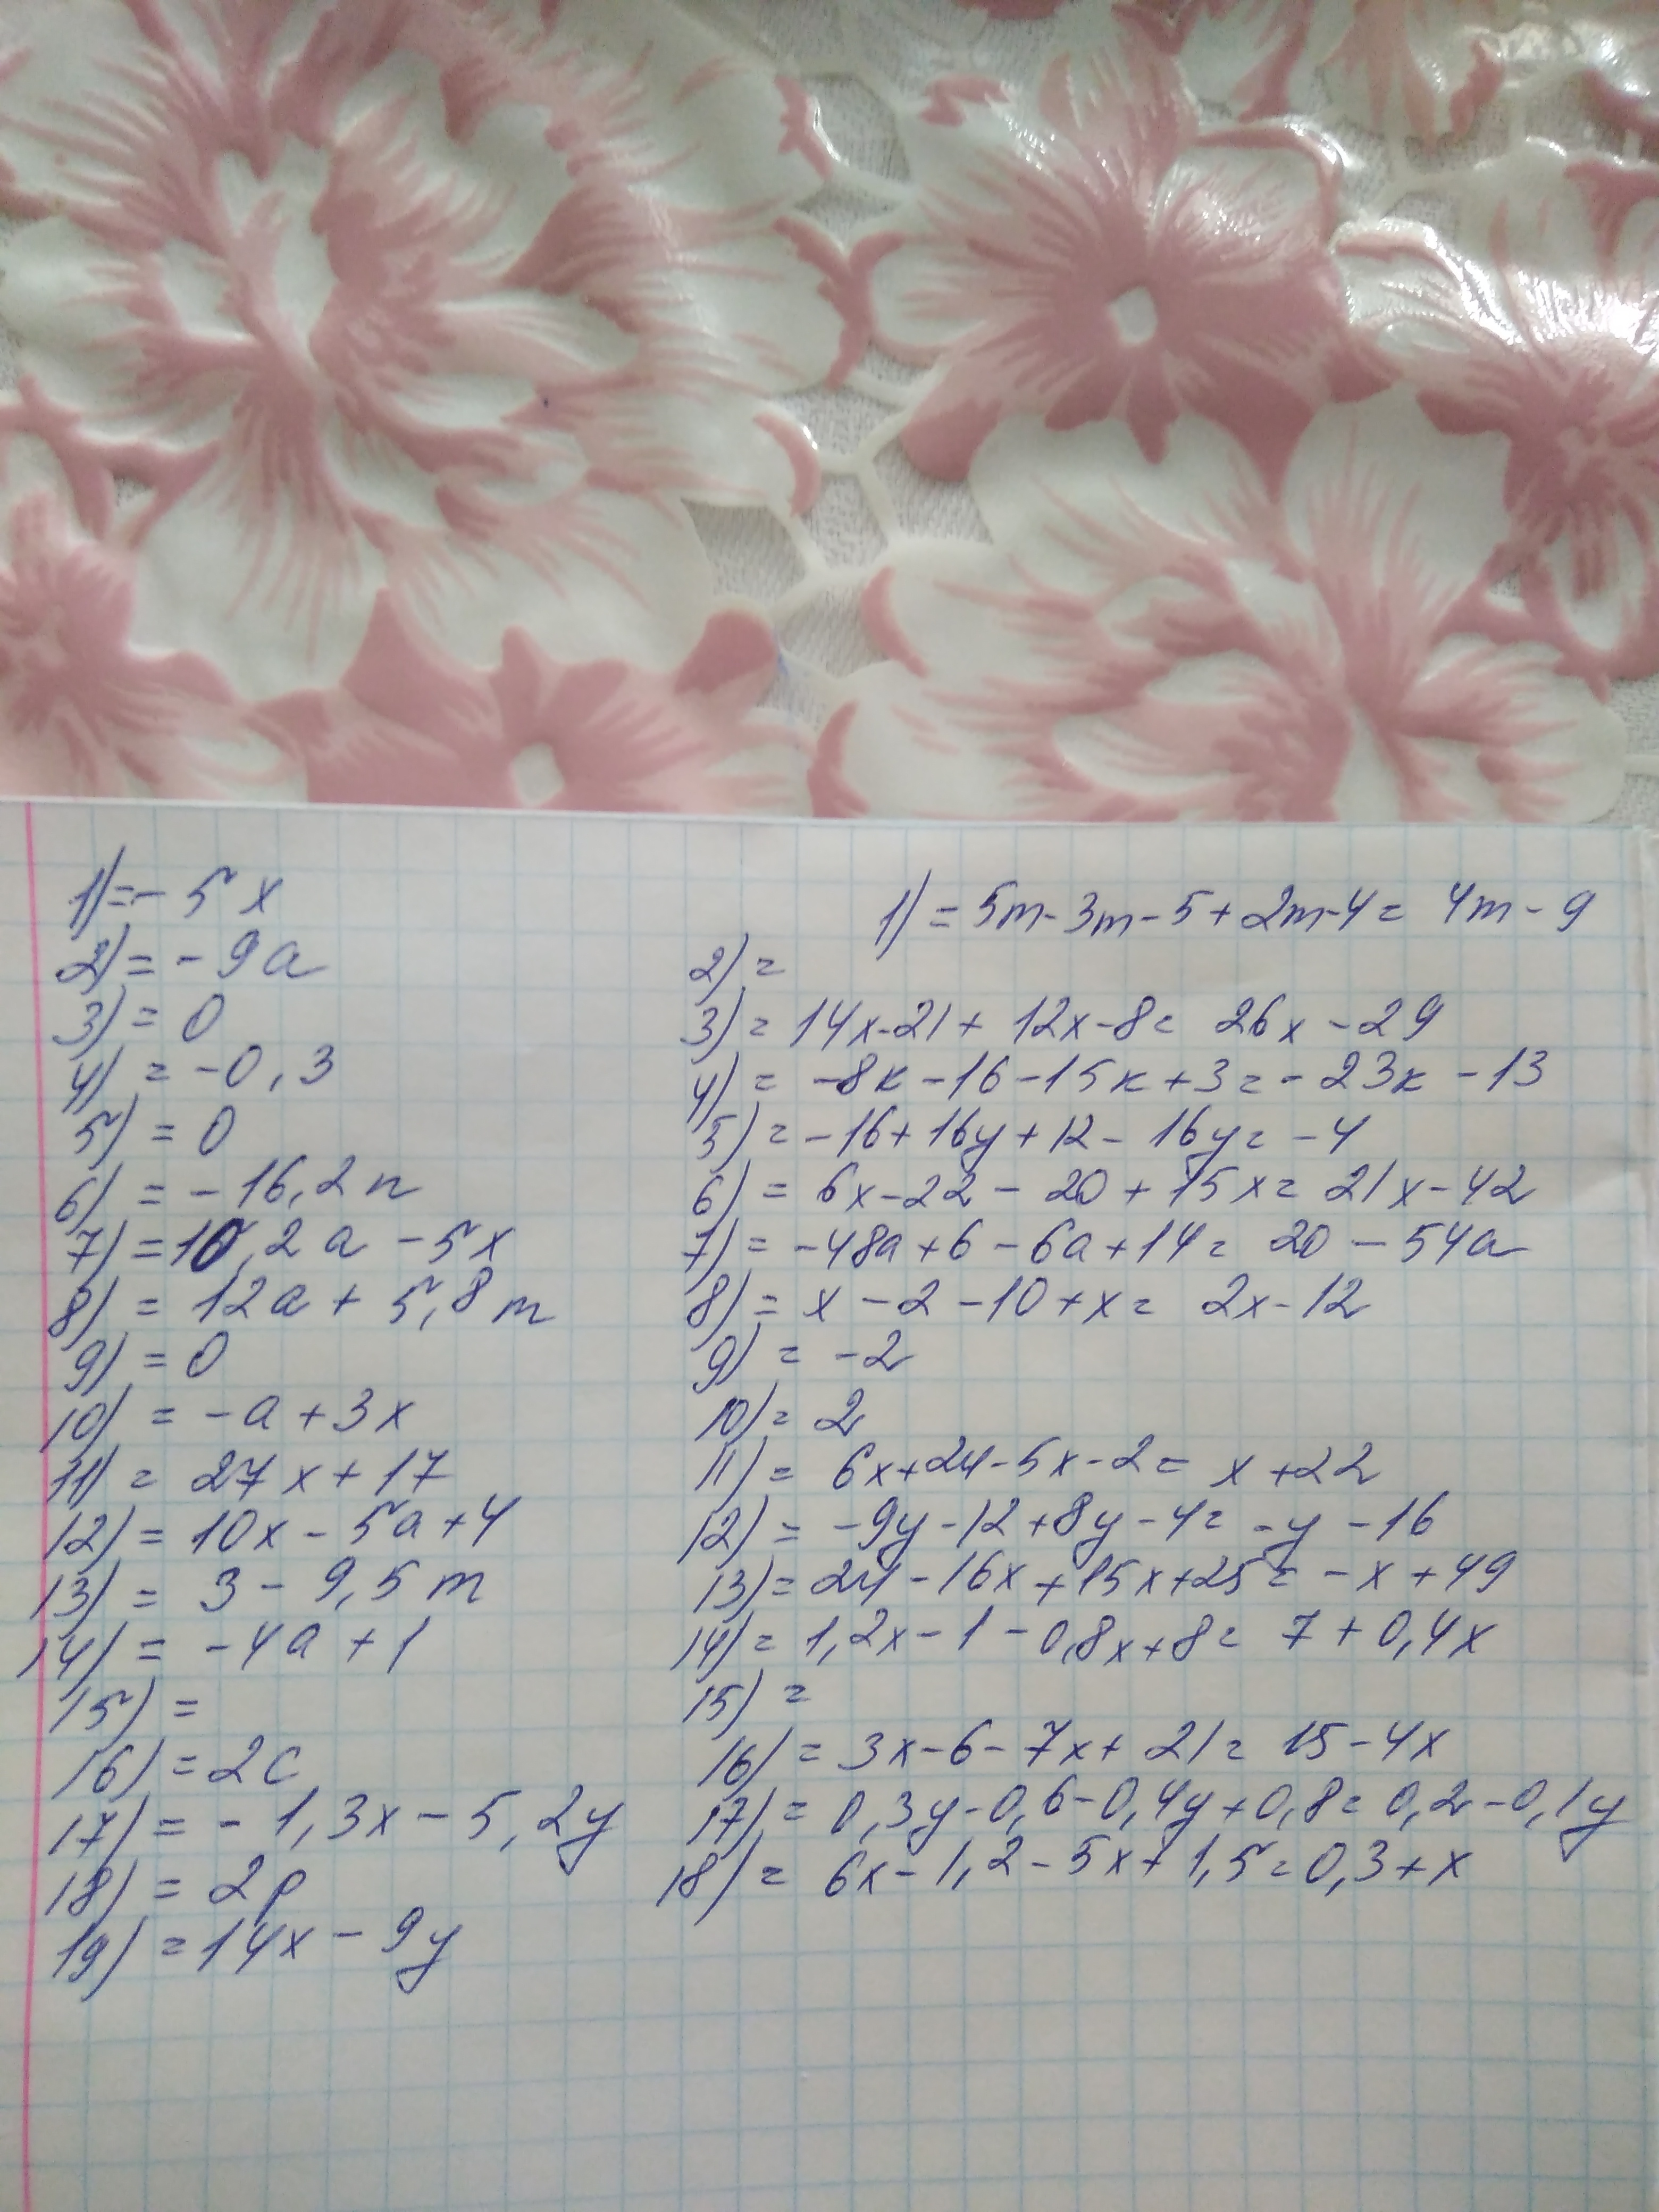 1) = - 5x
2) = - 9a
3) = 0
4) = -0,3
5) = 0
6) = - 16,2n
7) = 10,2a - 5x
8) = 12a + 5,8m
9) = 0
10) = -a + 3x
11) = 27x + 17
12) = 10x - 5a + 4
13) = 3 - 9,5m
14) = -4a + 1
15) =
16) = 2c
17) = - 1,3x - 5,2y
18) = 2p
19) = 14x - 9y
1) = 5m - 3m - 5 + 2m - 4 = 4m - 9
2) =
3) = 14x - 21 + 12x - 8 = 26x - 29
4) = -8k - 16 - 15k + 3 = - 23k - 13
5) = - 16 + 16y + 12 - 16y = - 4
6) = 6x - 22 - 20 + 15x = 21x - 42
7) = -48a + 6 - 6a + 14 = 20 - 54a
8) = x - 2 - 10 + x = 2x - 12
9) = -2
10) = 2
11) = 6x + 24 - 5x - 2 = x + 22
12) = -9y - 12 + 8y - 4 = -y - 16
13) = 24 - 16x + 15x + 25 = - x + 49
14) = 1,2x - 1 - 0,8x + 8 = 7 + 0,4x
15) =
16) = 3x - 6 - 7x + 21 = 15 - 4x
17) = 0,3y - 0,6 - 0,4y + 0,8 = 0,2 - 0,1y
18) = 6x - 1,2 - 5x + 1,5 = 0,3 + x